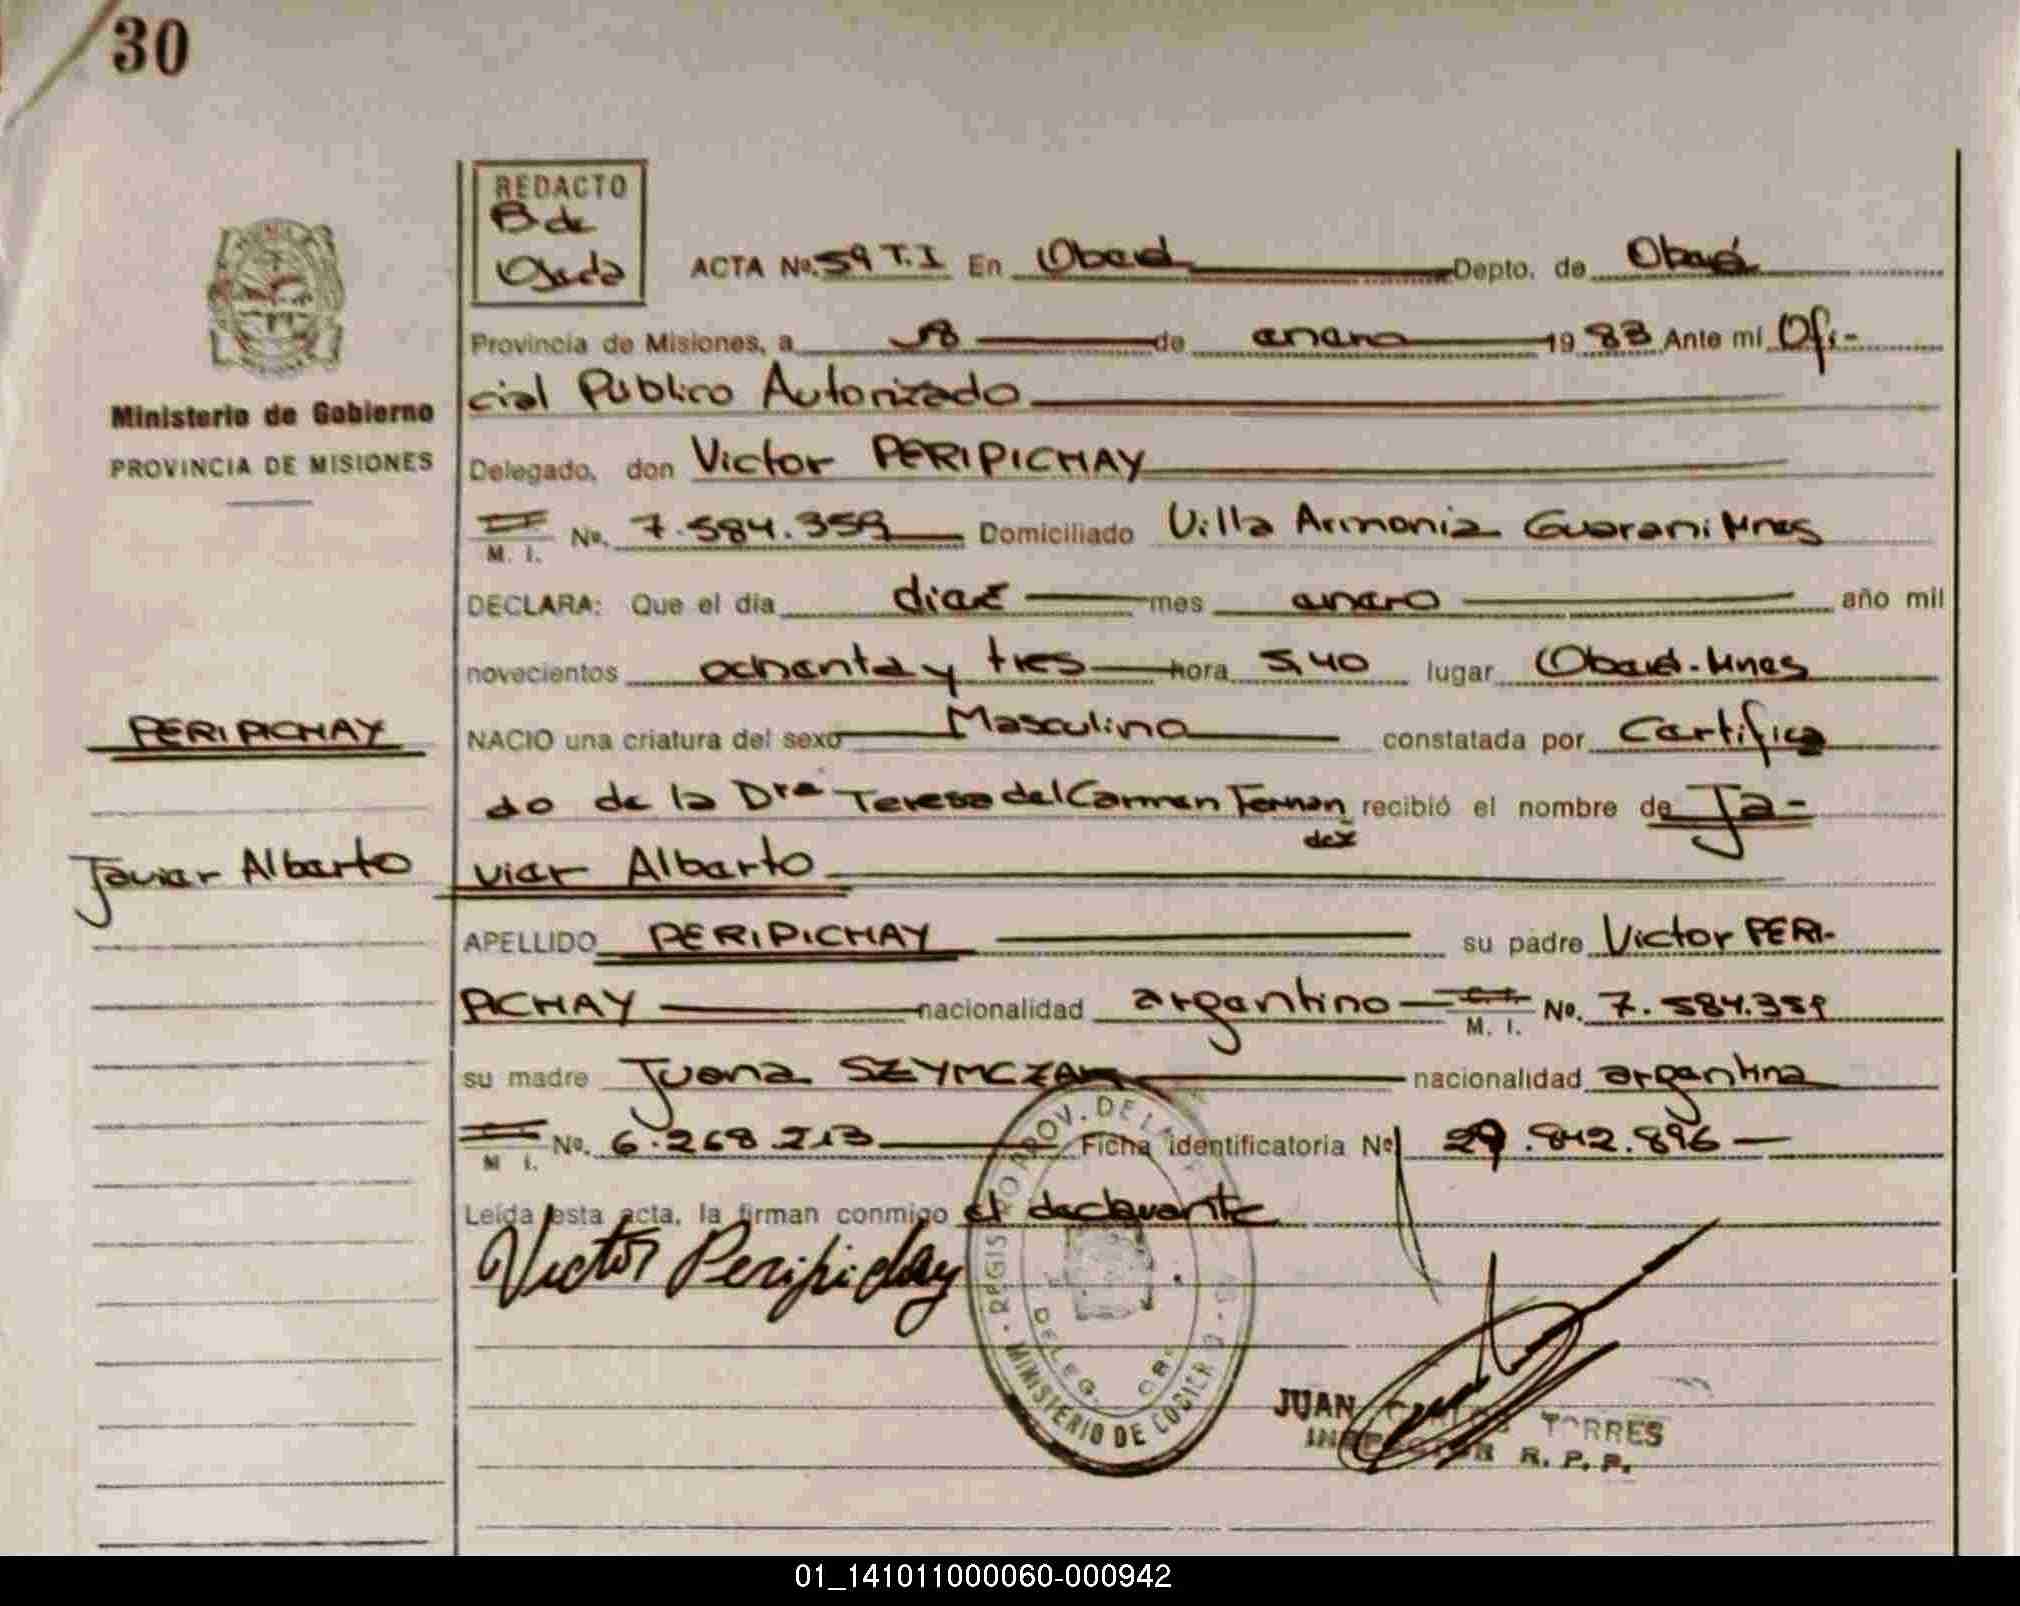 30
REDACTO
B de
Ojeda
ACTA No. 59 T.I En Oberá Depto. de Oberá
Provincia de Misiones, a 18 de enero 1983 Ante mí Ofi-
cial Público Autorizado
Ministerio de Gobierno
PROVINCIA DE MISIONES
Delegado, don Victor PERIPICHAY
M. I. No. 7.584.359 Domiciliado Villa Armonia Guarani Mnes
DECLARA: Que el día diez mes enero año mil
novecientos ochenta y tres hora 5,40 lugar Oberá-Mnes
PERIPICHAY
NACIO una criatura del sexo Masculino constatada por Certifica
do de la Dra Teresa del Carmen Fernan
dez
recibió el nombre de Ja-
Javier Alberto
vier Alberto
APELLIDO PERIPICHAY su padre Victor PERI-
PICHAY nacionalidad argentino M. I. No. 7.584.359
su madre Juana SZYMCZAK nacionalidad argentina
M. I. No. 6.268.213 Ficha identificatoria No 29.842.896
Leída esta acta, la firman conmigo el declarante
Victor Peripichay
REGISTRO PROV. DE LA
DELEG.
MINISTERIO DE GOBIERNO
JUAN CARLOS TORRES
INSPECTOR R. P. P.
01_141011000060-000942